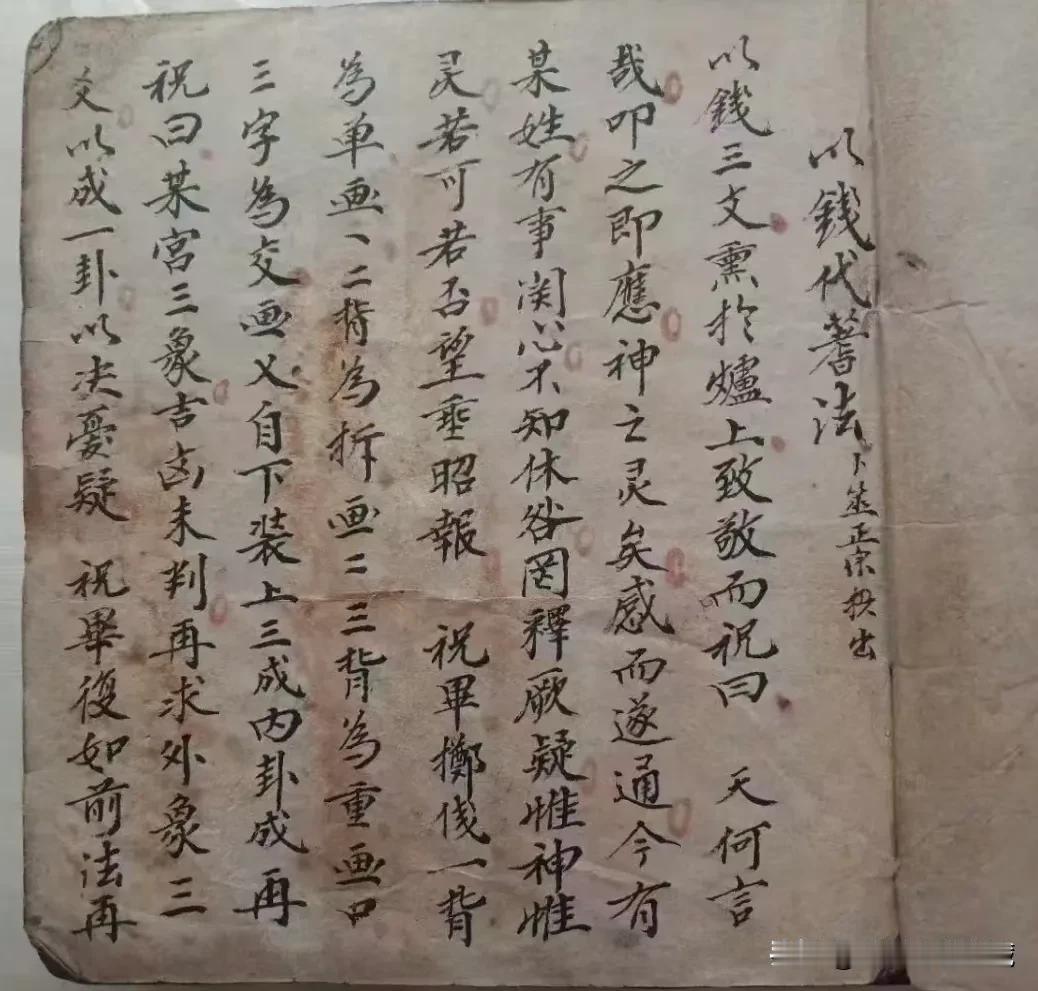 以錢代蓍法 卜筮正宗抄出
以錢三文熏於爐上致敬而祝曰 天何言
哉叩之即應神之灵矣感而遂通今有
某姓有事関心不知休咎罔釋厥疑惟神惟
灵若可若否望垂昭報 祝畢擲伐一背
為单画丶二背為拆画二三背為重画口
三字為交画乂自下装上三成内卦成再
祝曰某宮三象吉凶未判再求外象三
爻以成一卦以决憂疑 祝畢復如前法再